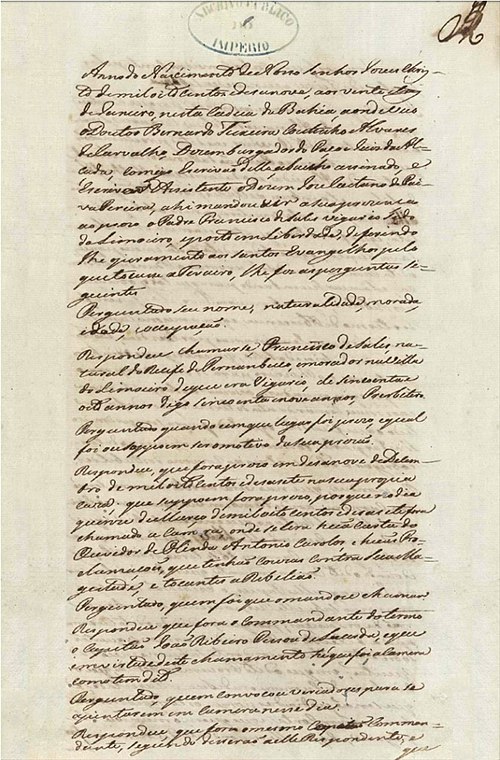 ARCHIVO PUBLICO
DO
IMPERIO
Anno do Nascimento de Nosso Senhor Jesus Chris-
to de mil oito centos e desanove, aos vinte
de Janeiro, nesta Cadeia da Bahia aonde veio
o Doutor Bernardo Teixeira Coutinho Alvares
de Carvalho, Dezembargador do Paço e Juis da Al-
çada, comigo Escrivão della abaixo assinado, e
Escrivão Assistente o Dezem. Jose Caetano de Pai-
va Pereira, ahi mandou vir a sua prezença
ao prezo o Padre Francisco de Sales vigario
do Limoeiro, e posto em Liberdade, deferindo
lhe o juramento aos Santos Evangelhos pelo
que tocava a Terceiro, lhe fez as perguntas se-
guintes
Perguntado seu nome, naturalidade, morada,
edade, occupação.
Respondeu chamar-se Francisco de Sales, na-
tural do Recife de Pernambuco, e morador na Villa
do Limoeiro de que era Vigario, de sincoenta e
oito annos digo sincoenta e nove annos, Presbitero
Perguntado quando e em que lugar foi prezo, e qual
foi ou suppoem ser o motivo da sua prizão.
Respondeu, que fora prezo em desanove de
de mil oito centos e desasete na sua propria
caza. que suppoem fora prezo, porque no dia
quinze de Março de mil oito centos e desasete fora
chamado a Camara, onde se lera hua Carta do
Ouvidor de Olinda Antonio Carlos e huas Pro-
clamacois, que tinhão couzas contra Sua Ma-
gestade, e tocantes a Rebelião.
Perguntado, quem foi que o mandou chamar
Respondeu que fora o Commandante do termo
o Capitão João Ribeiro Pessoa de Lacerda, e que
em virtude deste chamamento he que foi a Camera
como tem dito
Perguntado, quem convocou a vereadores para se
ajuntarem em Camera nesse dia.
Respondeu, que fora o mesmo Comman-
dante, segundo disserão a elle Respondente, e
que